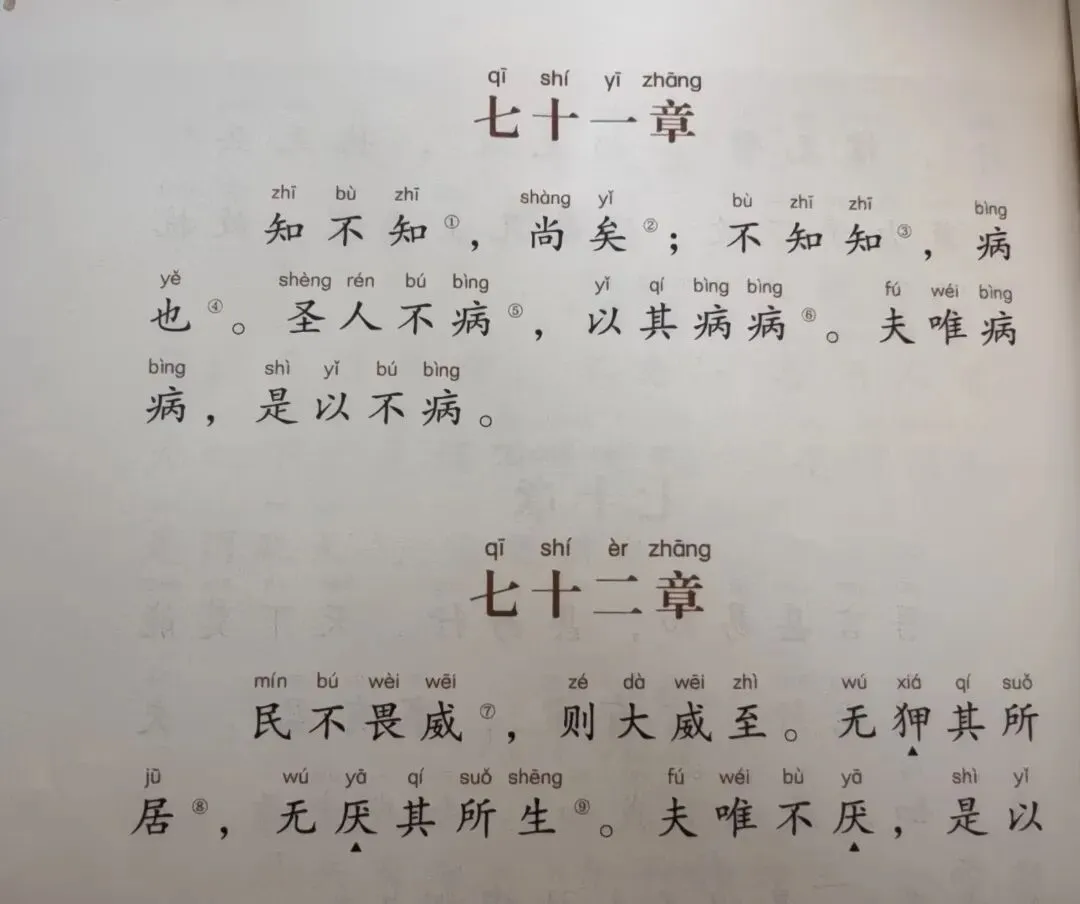 qī shí yī zhāng
七十一章
zhī bù zhī shàng yǐ bù zhī zhī bìng
知不知①，尚矣②；不知知③，病
yě shèng rén bú bìng yǐ qí bìng bìng fú wéi bìng
也④。圣人不病⑤，以其病病⑥。夫唯病
bìng shì yǐ bú bìng
病，是以不病。
qī shí èr zhāng
七十二章
mín bú wèi wēi zé dà wēi zhì wú xiá qí suǒ
民不畏威⑦，则大威至。无狎其所
jū wú yā qí suǒ shēng fú wéi bù yā shì yǐ
居⑧，无厌其所生⑨。夫唯不厌，是以